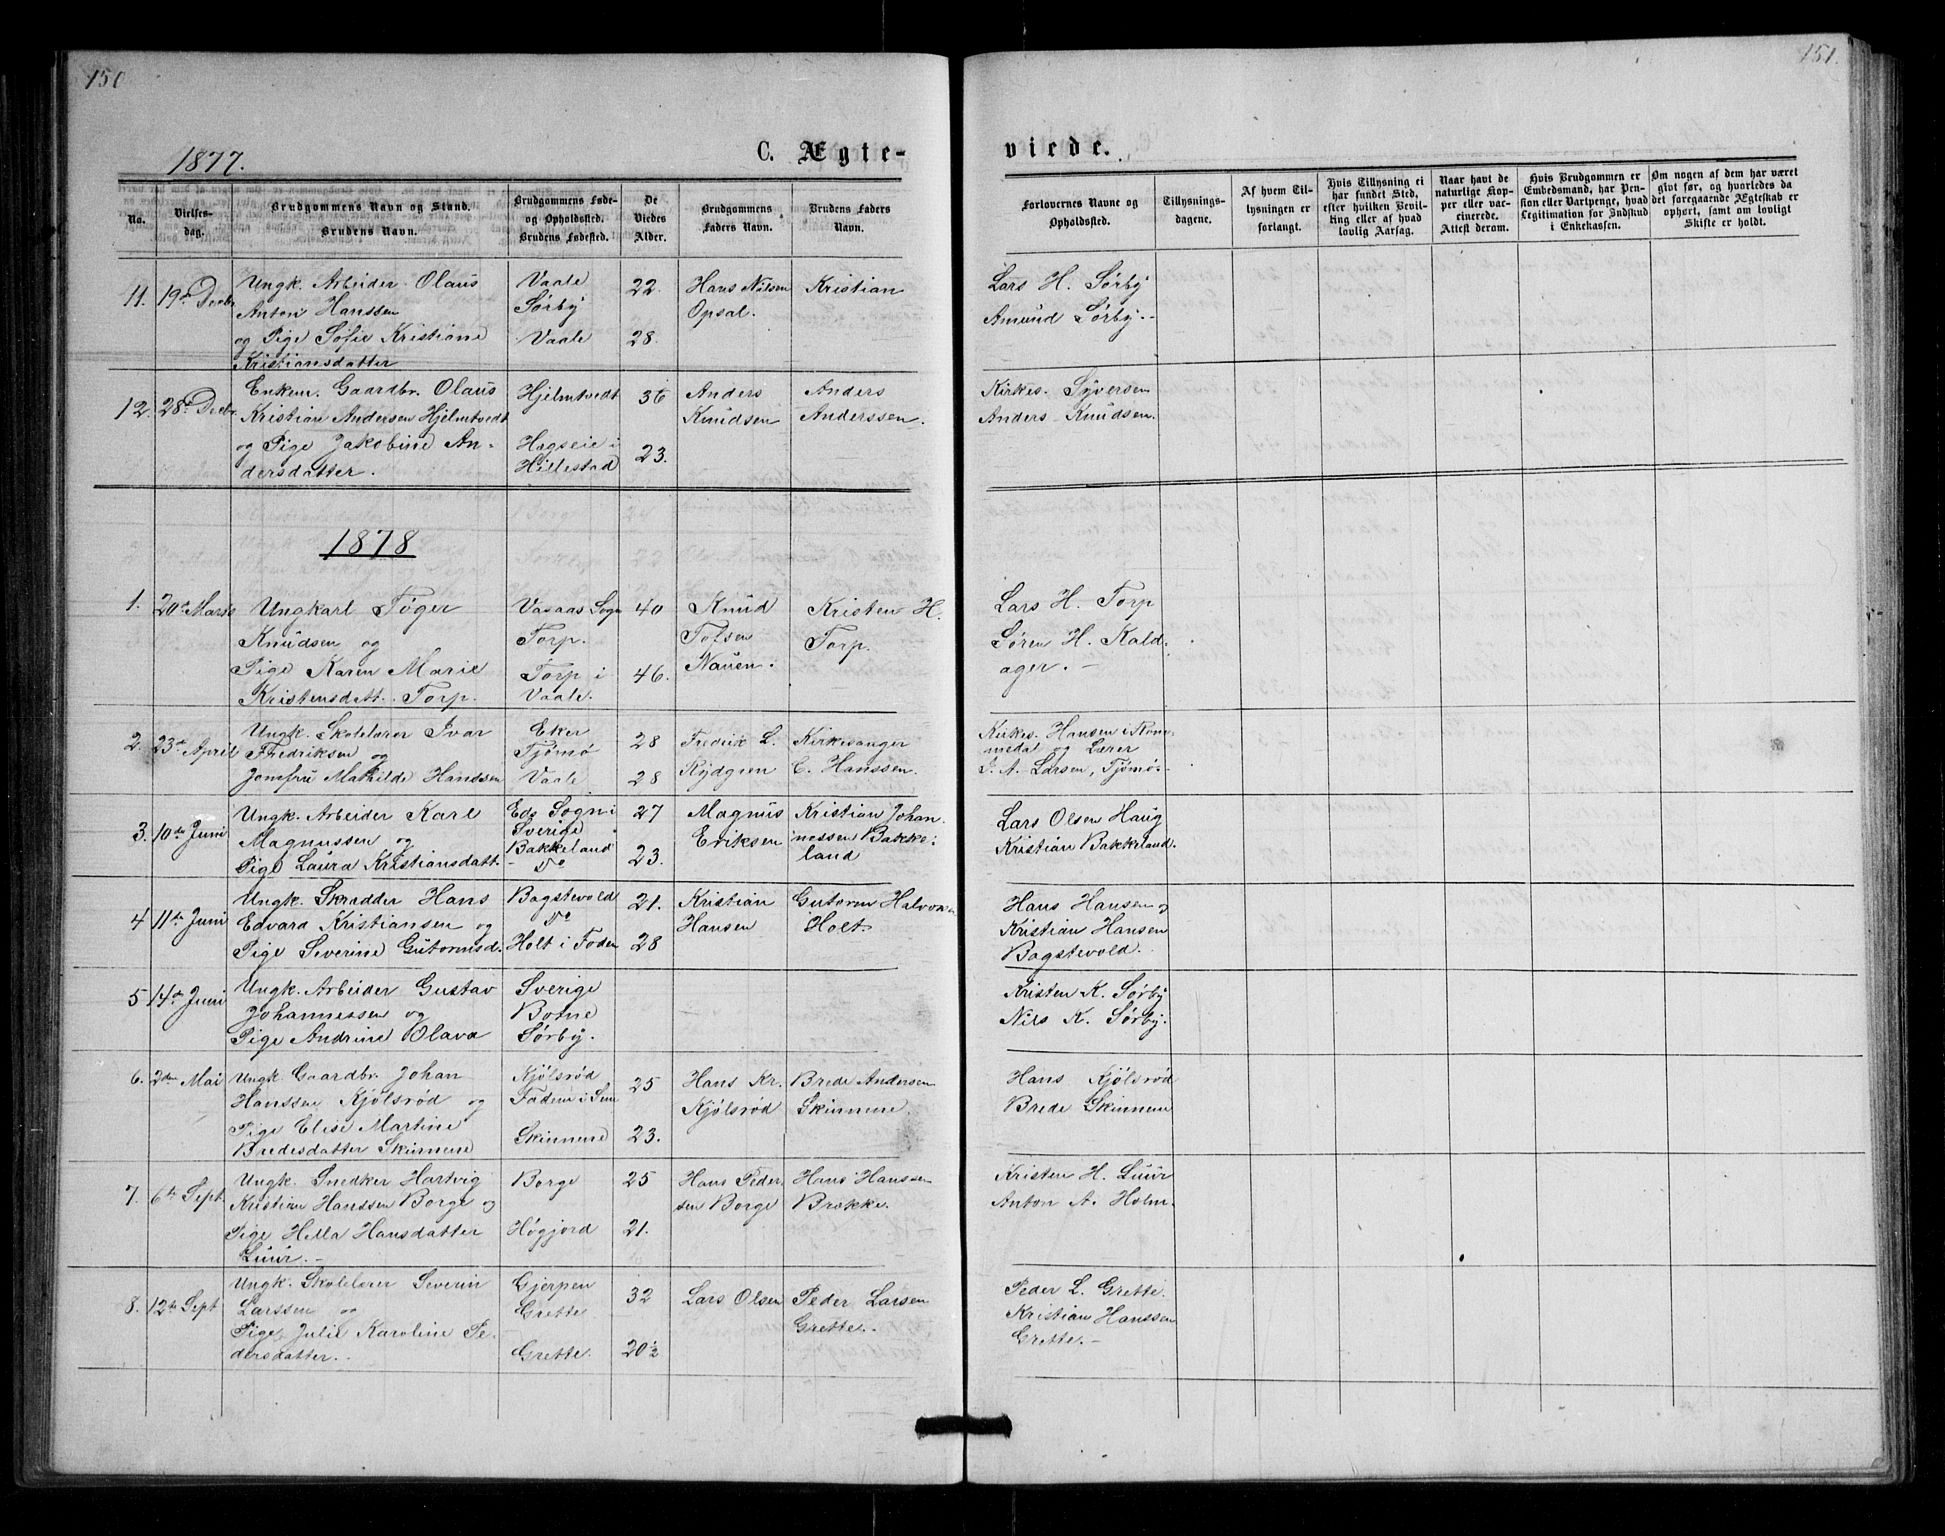 150
151.
1877.
C. Ægte-
viede.
No.
Vielses-
dag.
Brudgommens Navn og Stand.
Brudens Navn.
Brudgommens Føde-
og Opholdssted.
Brudens Fødested.
De
Viedes
Alder.
Brudgommens
Faders Navn.
Brudens Faders
Navn.
Forlovernes Navne og
Opholdssted.
Tillysnings-
dagene.
Af hvem Til-
lysningen er
forlangt.
Hvis Tillysning ei
har fundet Sted,
efter hvilken Bevil-
king eller af hvad
lovlig Aarsag.
Naar havt de
naturlige Kop-
per eller vac-
cinerede.
Attest derom.
Hvis Brudgommen er
Embedsmand, har Pen-
sion eller Vartpenge, hvad
Legitimation for Indskud
i Enkekassen.
Om nogen af dem har været
givt før, og hvorledes da
det foregaaende Ægteskab er
ophørt, samt om lovligt
Skifte er holdt.
11.
19de Decbr.
Ungk. Arbeider Olaus
Anton Hanssen
og Pige Sofie Kristiane
Kristiansdatter
Vaale
Sørby
Vaale
22.
28.
Hans Nilsen
Opsal.
Kristian
Lars H. Sørby
Amund Sørby.
12.
28de Decbr.
Enkem. Gaardbr. Olaus
Kristian Andersen Hjelmtvedt
og Pige Jakobine An-
dersdatter.
Hjelmtvedt
Hagseie i
Hillestad
36
23.
Anders
Knudsen
Anders
Anderssen.
Kirkes. Syversen
Anders Knudsen.
1878
1.
20de Marts
Ungkarl Tøger
Knudsen og
Pige Karen Marie
Kristensdatt. Torp.
Vasaas Sogn
Torp.
Torp i
Vaale.
40
46.
Knud
Tofsen
Nauen.
Kristen H.
Torp.
Lars H. Torp
Søren H. Kald-
ager.
2.
23de April
Ungk. Skolelærer Ivar
Fredriksen og
Jomfru Mathilde Hanssen
Eker
Tjømø
Vaale
28
28
Fredrik L.
Rydgren
Kirkesanger
C. Hanssen.
Kirkes. Hansen i Ram-
medal og Lærer
J. A. Larsen, Tjømø.
3.
10de Juni
Ungk. Arbeider Karl
Magnussen og
Pige Laura Kristiansdatt.
Eds Sogn i
Sverige
Bakkeland
Do
27
23.
Magnus
Eriksen
Kristian Johan-
nessen Bakke-
land
Lars Olsen Haug
Kristian Bakkeland.
4
11te Juni
Ungk. Skrædder Hans
Edvard Kristiansen og
Pige Severine Gutormsd.
Bogstevold
Do
Holt i Foden
21.
28
Kristian
Hansen
Gutorm Halvorsen
Holt
Hans Hansen og
Kristian Hansen
Bogstevold.
5
14de Juni
Ungk. Arbeider Gustav
Johannessen og
Pige Andrine Olava
Sverige
Botne
Sørby.
Kristen K. Sørby
Nils K. Sørby.
6.
2den Mai
Ungk. Gaardbr. Johan
Hanssen Kjølsrød og
Pige Elise Martine
Bredesdatter Skinnene
Kjølsrød
Fadum i Sem
Skinnene
25
23.
Hans Kr.
Kjølsrød
Brede Andersen
Skinnene.
Hans Kjølsrød
Brede Skinnene
7.
6te Sept.
Ungk. Snedker Hartvig
Kristian Hanssen Borge og
Pige Hella Hansdatter
Luur.
Borge
Høgjord
25
21.
Hans Peder-
sen Borge
Hans Hanssen
Brække.
Kristen H. Luur
Anton A. Holm.
8.
12te Sept
Ungk. Skolelærer Severin
Larssen og
Pige Julie Karoline Pe-
dersdatter.
Gjerpen
Grette
Grette.
32
20 1/2
Lars Olsen
Peder Larsen
Grette.
Peder L. Grette.
Kristian Hanssen
Grette.